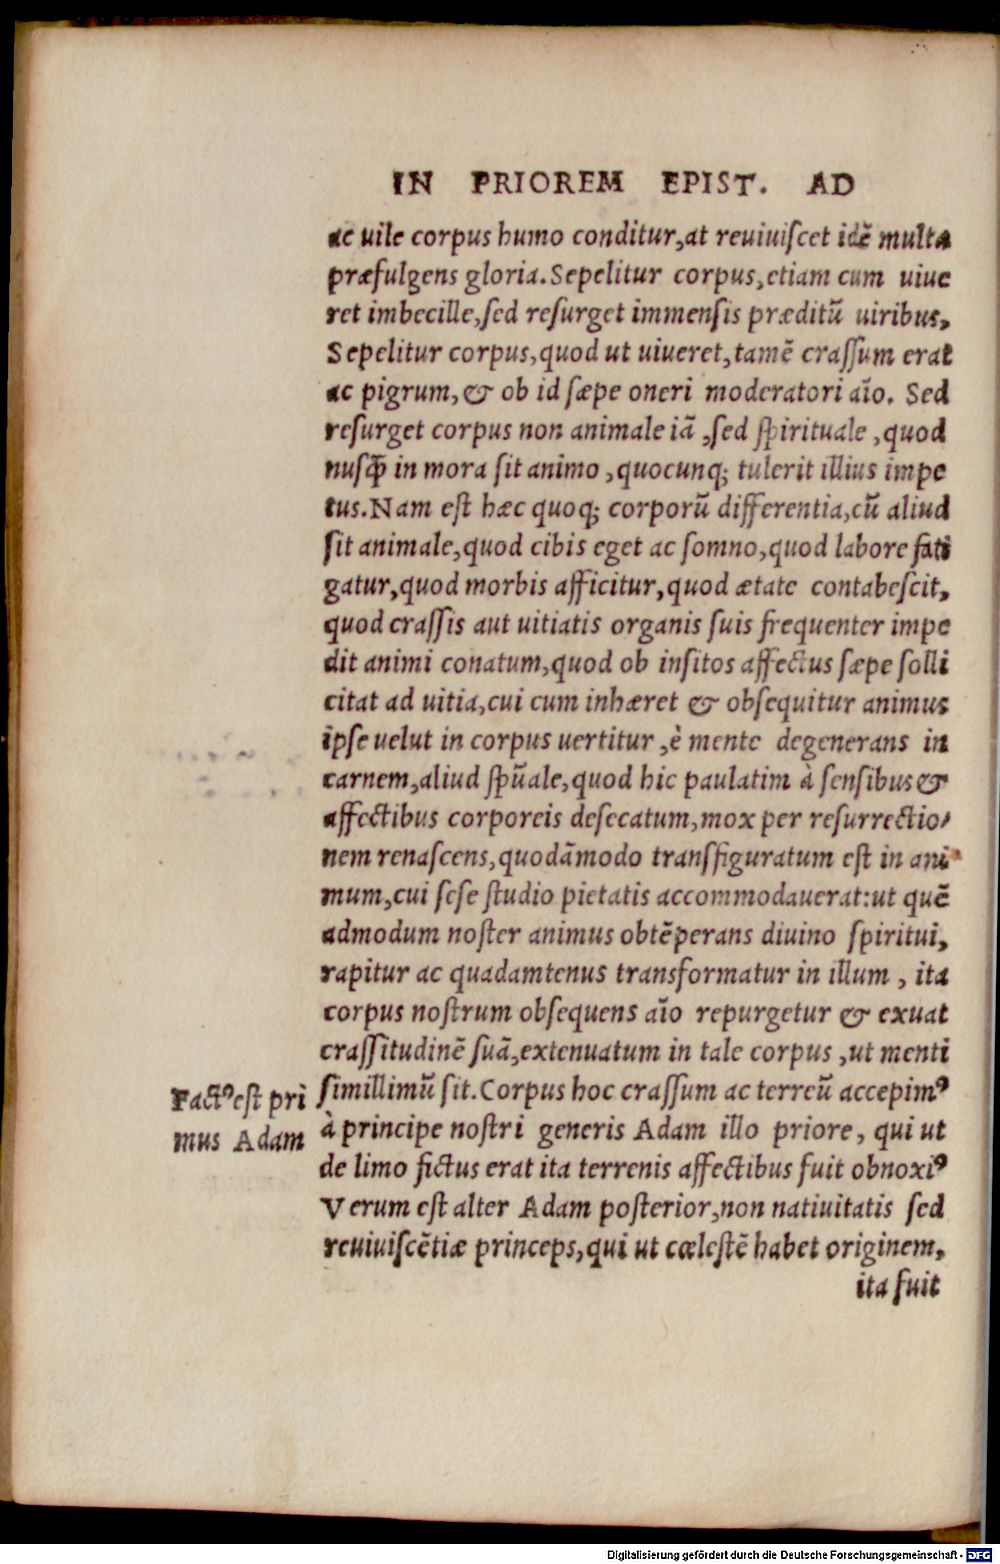 IN PRIOREM EPIST. AD
ac uile corpus humo conditur,at reuiuiſcet idē multa
præfulgens gloria.Sepelitur corpus,etiam cum uiue
ret imbecille,ſed reſurget immenſis præditū uiribus,
Sepelitur corpus,quod ut uiueret,tamē craſſum erat
ac pigrum,& ob id ſæpe oneri moderatori aīo. Sed
reſurget corpus non animale iā ,ſed ſpirituale ,quod
nuſꝙ̄ in mora ſit animo ,quocunq; tulerit illius impe
tus.Nam eſt hæc quoq; corporū differentia,cū aliud
ſit animale,quod cibis eget ac ſomno,quod labore fati
gatur,quod morbis afficitur,quod ætate contabeſcit,
quod craſſis aut uitiatis organis ſuis frequenter impe
dit animi conatum,quod ob inſitos affectus ſæpe ſolli
citat ad uitia,cui cum inhæret & obſequitur animus
ipſe uelut in corpus uertitur ,è mente degenerans in
carnem,aliud ſpūale,quod hic paulatim à ſenſibus &
affectibus corporeis deſecatum,mox per reſurrectio⸗
nem renaſcens,quodāmodo transfiguratum eſt in ani
mum,cui ſeſe ſtudio pietatis accommodauerat:ut quē
admodum noſter animus obtēperans diuino ſpiritui,
rapitur ac quadamtenus transformatur in illum , ita
corpus noſtrum obſequens aīo repurgetur & exuat
craſſitudinē ſuā,extenuatum in tale corpus ,ut menti
ſimillimū ſit.Corpus hoc craſſum ac terreū accepimꝰ
Factꝰeſt pri
mus Adam
à principe noſtri generis Adam illo priore, qui ut
de limo fictus erat ita terrenis affectibus fuit obnoxiꝰ
Verum eſt alter Adam poſterior,non natiuitatis ſed
reuiuiſcētiæ princeps,qui ut cœleſtē habet originem,
ita fuit
Digitalisierung gefördert durch die Deutsche Forschungsgemeinschaft - DFG